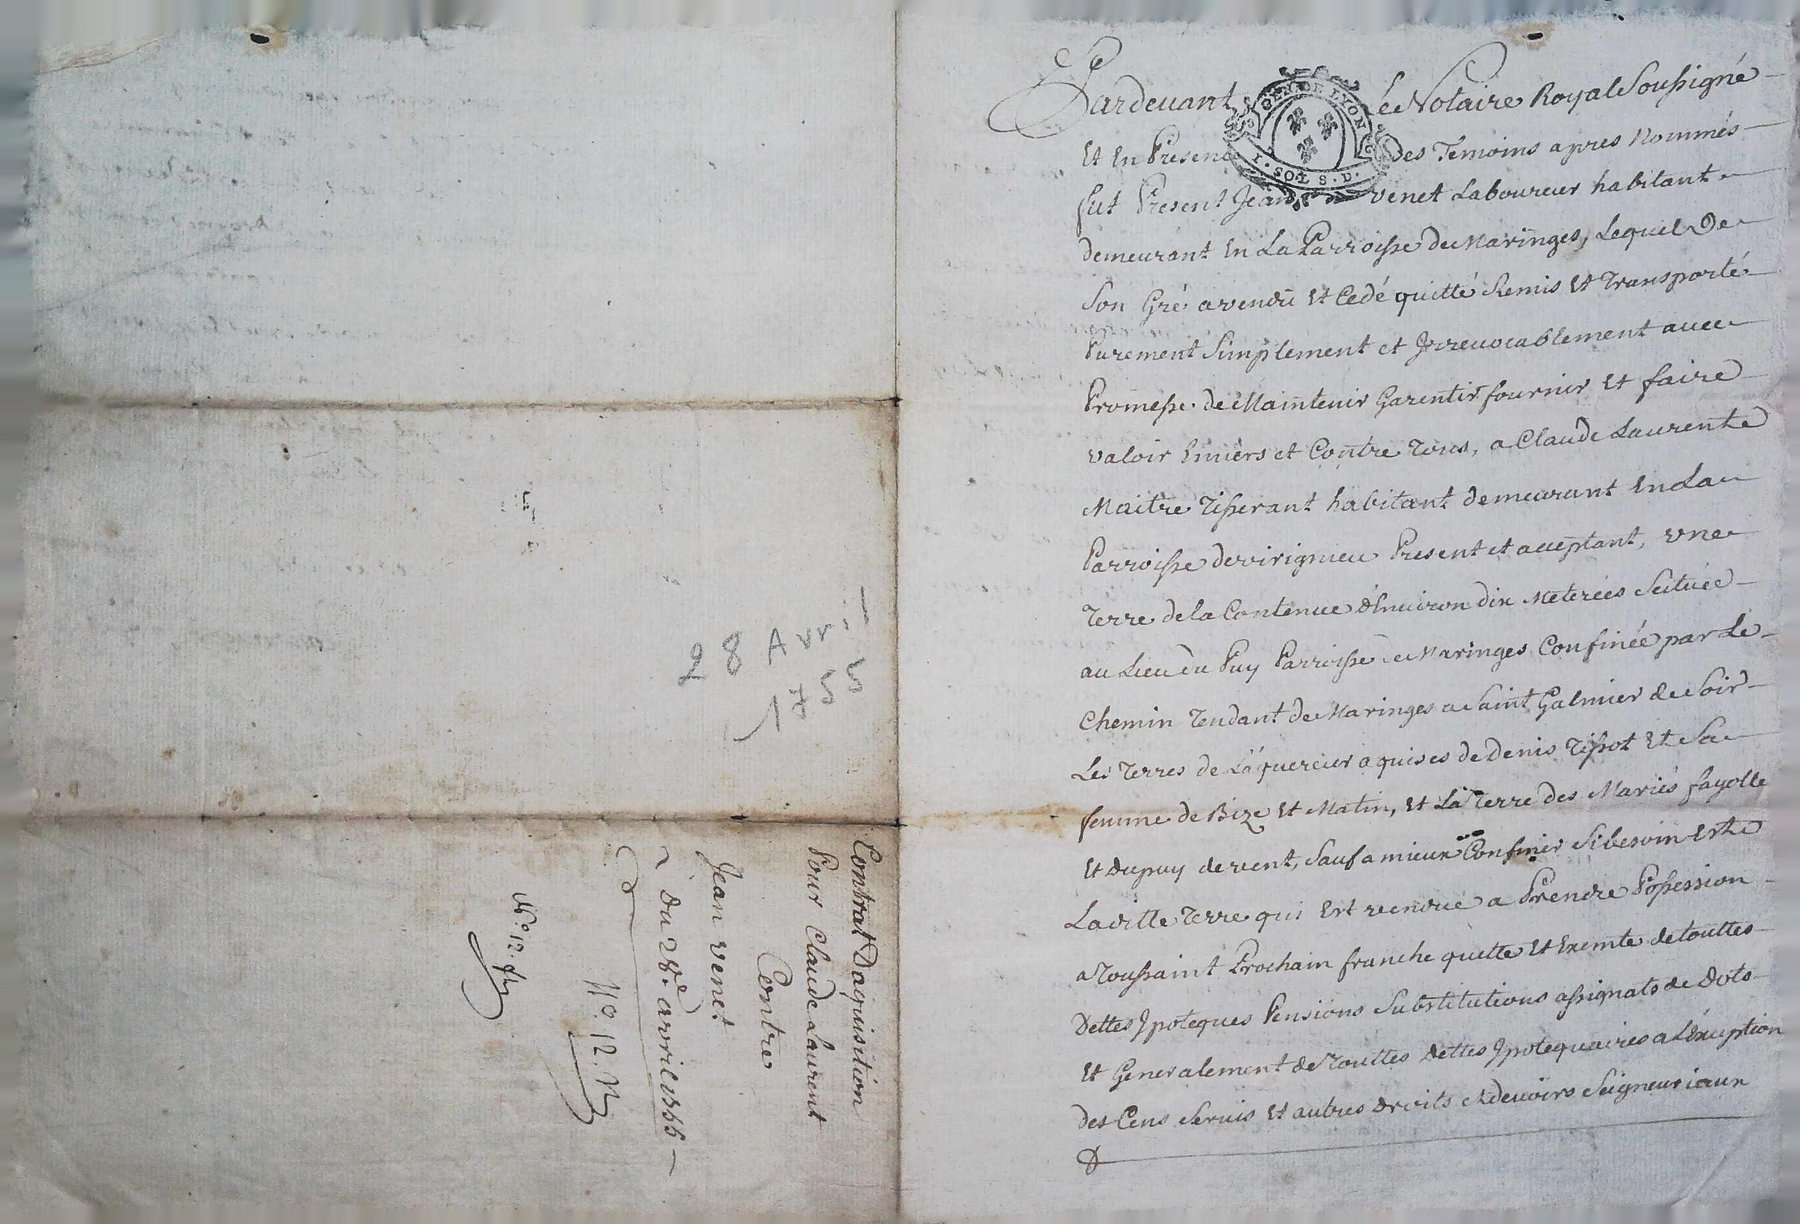 28 Avril
1755
Contrat Daquisition
Pour Claude Laurent
Contre
Jean Venet
Du 28e. avril 1755
No. 12.
No. 12.
Pardevant Le Notaire Royal Soussigné
GEN. DE LYON
1. SOL 8. D.
Et En Presence des Temoins apres Nommés
fut Present Jean Venet Laboureur habitant
demeurant En La Parroisse de Maringes, Lequel De
Son Gré a vendu Et Cedé quitté Remis Et Transporté
Purement Simplement et Jrrevocablement avec
Promesse de Maintenir Garentir fournir Et faire
valoir Envers et Contre Tous, a Claude Laurent
Maitre Tisserant habitant demeurant En La
Parroisse de virignieu Present et acceptant, une
Terre de la Contenue d'Environ dix Meterées Scituée
au Lieu du Puy Parroisse de Maringes Confinée par Le
Chemin Tendant de Maringes a Saint Galmier de Soir
Les Terres de L'aquereur aquises de Denis Tissot Et Sa
femme de Bize Et Matin, Et La Terre des Mariés fayolle
Et Dupuy de vent, Sauf a mieux Confiner Si besoin Est
Laditte Terre qui Est vendue a Prendre Possession
a Toussaint Prochain franche quitte Et Exemte de touttes
Dettes Jpoteques Pensions Substitutions assignats de Dots
Et Generalement de Touttes Dettes Jpotequaires a L'exception
des Cens Servis Et autres Droits Et devoirs Seigneuriaux